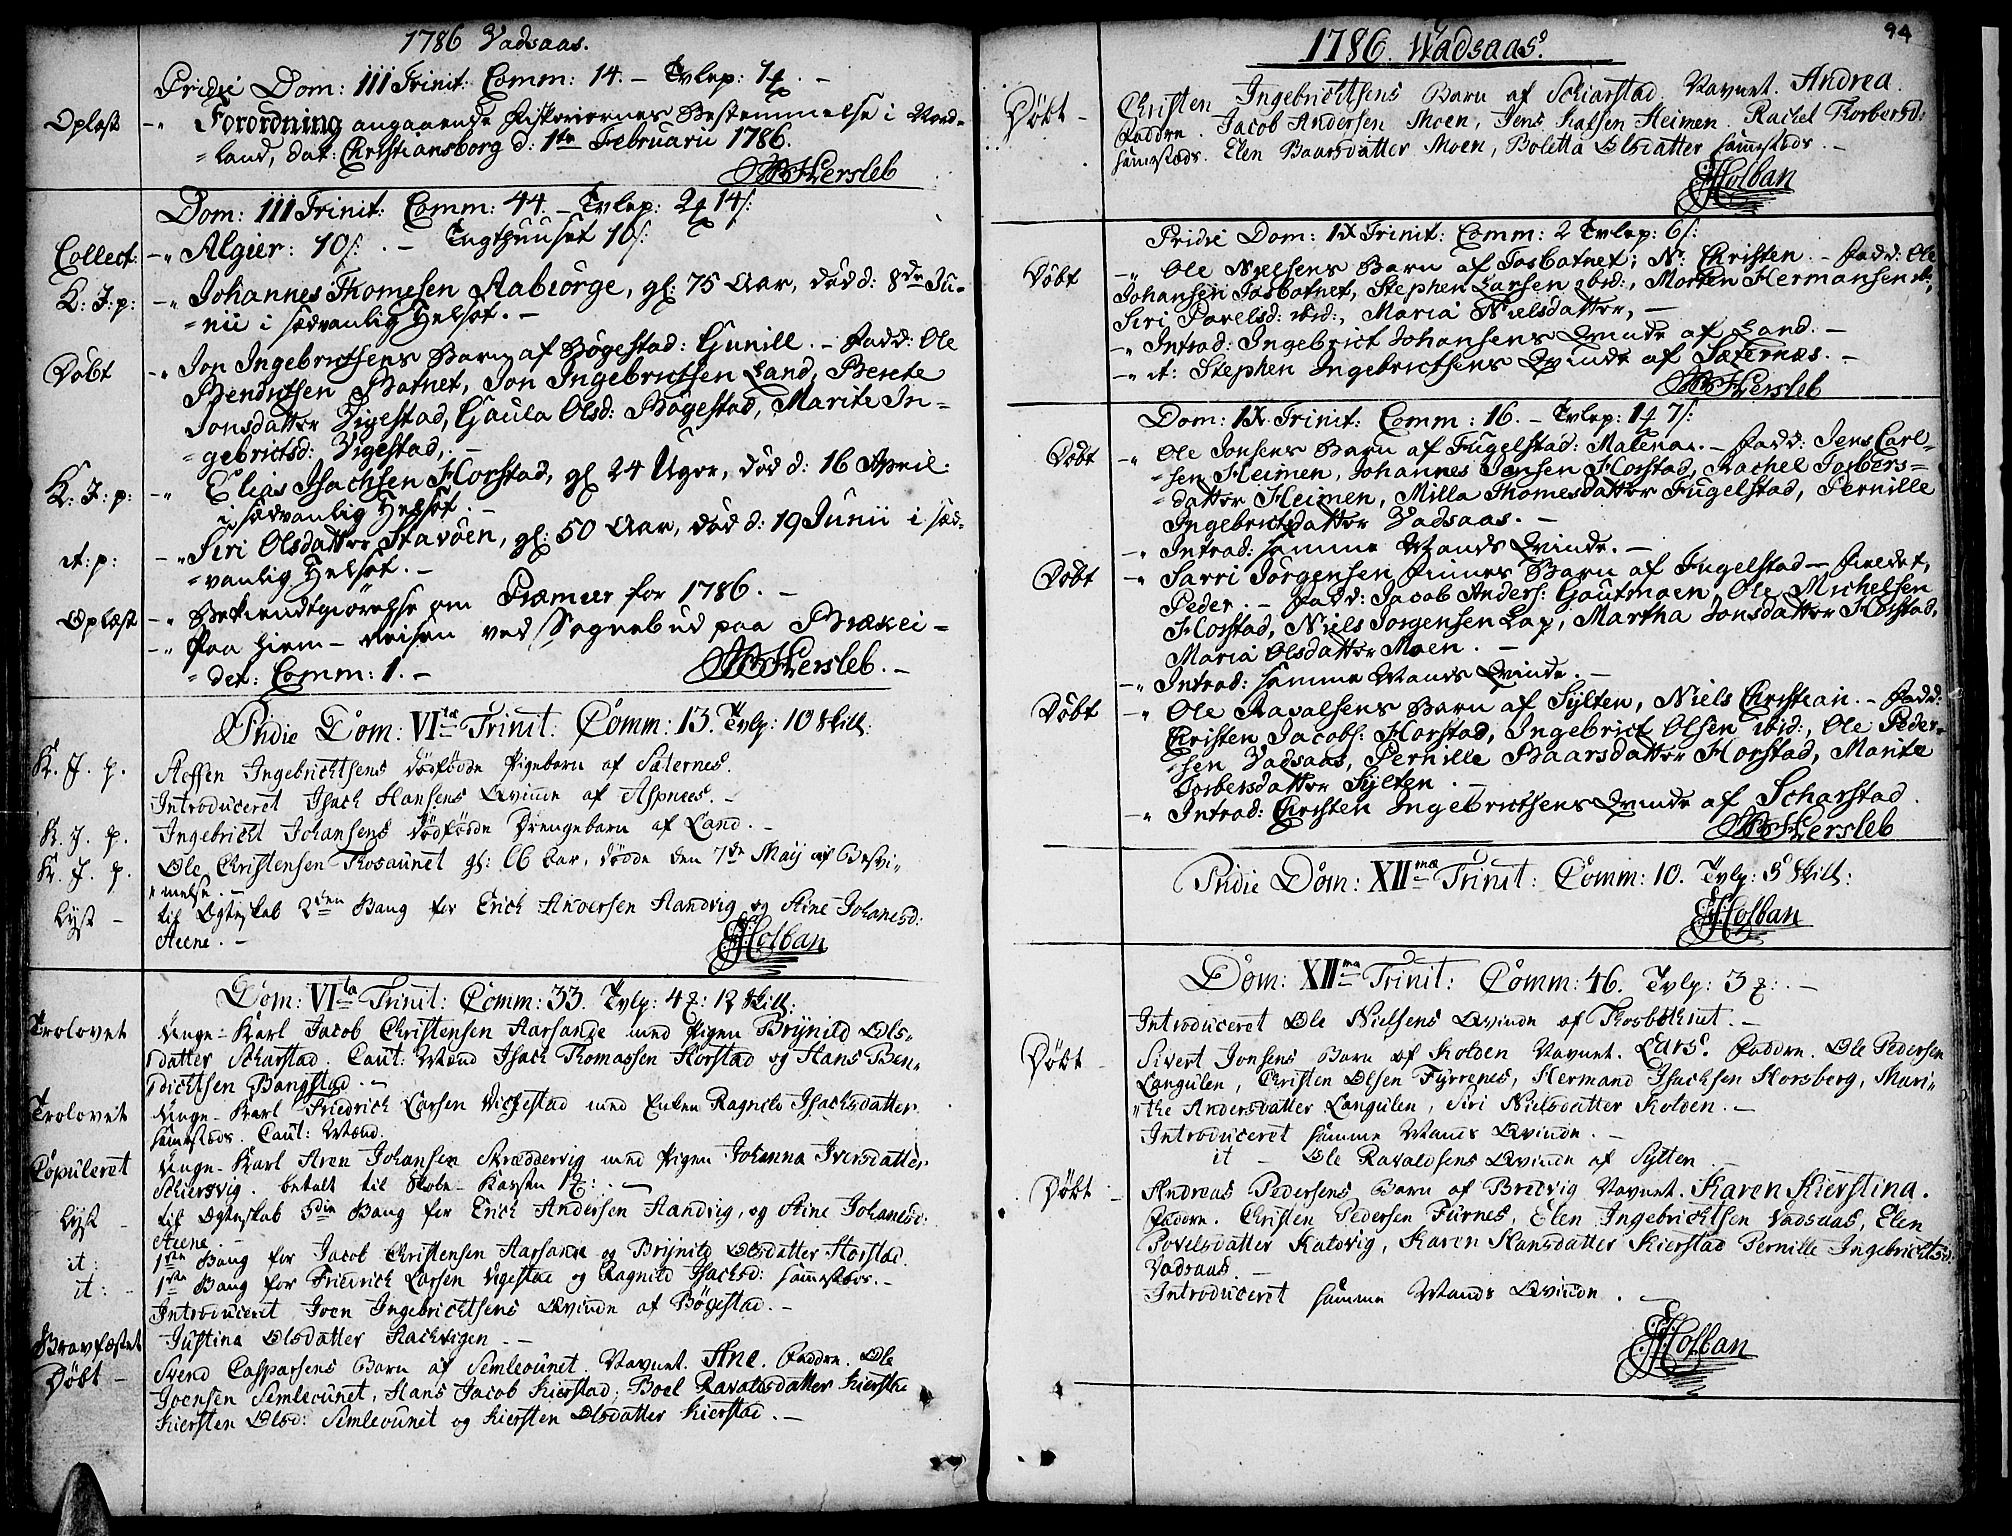 1786 Vadsaas.
Pridie Dom: III Trinit: Comm: 14. - Tvlep: 1
Oplæst -" Forordning angaaende Fiskeriernes Bestemmelse i Nord-
"land, dat: Christiansborg d. 1ste Februarii 1786.
Hersleb
Dom: III Trinit: Comm: 44. - Tvlep: 2 14/:
Collect: -" Algier: 10/: . - Tugthuuset 10/:
K: J: p: -" Johannes Thomesen Aabiørge, gl: 75 Aar, død d: 8de Ju-
"nii i sædvanlig Helsot. -
Døbt -" Jon Ingebrictsens Barn af Bøgestad: Gunill. - Fadd: Ole
Bendictsen Botnet, Jon Ingebrictsen Land, Berete
Jonsdatter Vigestad, Gaula Olsd: Bøgestad, Marite In-
"gebrictsd: Vigestad. -
K: J: p: -" Elias Isachsen Horstad, gl 24 Uger, død d: 16 April:
i sædvanlig Helsot. -
it: p: -" Siri Olsdatter Stavøen, gl: 50 Aar, død d: 19 Junii i sæd-
"vanlig Helsot. -
Oplæst -" Bekiendtgiørelse om Præmier for 1786. -
-" Paa Hiem-Reisen ved Sognebud paa Brækei-
"det: Comm: 1. - Hersleb. -
Pridie Dom: VIta Trinit: Comm: 13. Tvlp: 10 Skill:
K. J. p. Steffen Ingebrichtsens dødfødde Pigebarn af Sæternes.
Introduceret Isach Hansens Qvinde af Aspnees. -
K. J. p. Ingebricht Johansens dødfødde Drengebarn af Land. -
K. J. p. Ole Christensen Thosaunet gl: 66 Aar, dødde den 7de Maij af Besvi-
"melse. -
Lyst - til Ægteskab 2den Gang for Erich Andersen Aandvig og Stine Johanesd:
Steene. -
Holban
Dom: VIta Trinit: Comm: 33. Tvlp: 4 : 12 Skill:
Trolovet Unge-Karl Jacob Christensen Aarsande med Pigen Brynild Ols-
datter Scharstad. Caut: Mænd Isach Thomassen Horstad og Hans Ben-
dichtsen Bangstad. -
Trolovet Unge-Karl Friedrich Larsen Vigestad med Enken Ragnild Isachsdatter
sammestæds. Caut: Mænd.
Copuleret Unge-Karl Aren Johansen Skræddervig med Pigen Johanna Iversdatter
Schiersvig. betalt til Skole-Kassen 1 : . -
Lyst - til Ægteskab 3die Gang for Erich Andersen Aandvig, og Stine Johanesd:
Steene. -
it: 1ste Gang for Jacob Christensen Aarsande og Brynild Olsdatter Horstad.
it: - 1ste Gang for Friedrich Larsen Vigestad og Ragnild Isachsd: sammestæds. -
Introduceret Joen Ingebrichtsens Qvinde af Bøgestad. -
Gravfæstet Justina Olsdatter Aachvigen. -
Døbt - Svend Casparsens Barn af Semleounet. Navnet. Ane. Faddre. Ole
Joensen Semleounet, Hans Jacob Kierstad, Boel Ravaldsdatter Kierstad
Kiersten Olsd: Semleounet og Kiersten Olsdatter Kierstad. -
94
1786. Wadsaas.
Døbt - Christen Ingebrichtsens Barn af Schiarstad. Navnet. Andrea.
Faddre. Jacob Andersen Moen, Jens Kalsen Heimen. Rachel Thorbersd:
sammestæds. Elen Baarsdatter Moen, Boletta Olsdatter sammestæds. -
Holban
Pridie Dom: IX Trinit: Comm: 2 Tvlep: 6/:
Døbt -" Ole Nielsens Barn af Tosbotnet; N: Christen. - Fadd: Ole
Johansen Tosbotnet, Stephen Larsen ibid:, Morten Hermansen ib:,
Siri Pavelsd: ibid:, Maria Nielsdatter, -
-" Introd: Ingebrict Johansens Qvinde af Land. -
-" it: Stephen Ingebrictsens Qvinde af Sæternæs. -
Hersleb
Dom: IX Trinit: Comm: 16. - Tvlep: 1 7/:
Døbt -" Ole Jonsens Barn af Fugelstad: Malena. - Fadd: Jens Carl-
"sen Heimen, Johannes Jonsen Horstad, Rachel Torbers-
"datter Heimen, Milla Thomesdatter Fugelstad, Pernille
Ingebrictsdatter Vadsaas. -
-" Introd: samme Mands Qvinde. -
Døbt -" Sarri Jorgensen Finnes Barn af Fugelstad-Fieldet,
Peder. - Fadd: Jacob Anders: Gautmoen, Ole Michelsen
Horstad, Niels Jorgensen Lap, Martha Jonsdatter Horstad,
Maria Olsdatter Moen. -
-" Introd: samme Mands Qvinde. -
Døbt -" Ole Ravalsens Barn af Sylten, Niels Christian. - Fadd:
Christen Jacobs: Horstad, Ingebrict Olsen ibid:, Ole Peder-
"sen Vadsaas, Pernille Baarsdatter Horstad, Marite
Torbersdatter Sylten. -
-" Introd: Christen Ingebrictsens Qvinde af Scharstad.
Hersleb
Pridie Dom: XIIma Trinit: Comm: 10. Tvlp: 8 Skill:
Holban
Dom: XIIma Trinit: Comm: 46. Tvlp: 3 : . -
Introduceret Ole Nielsens Qvinde af Thosbothnet. -
Døbt - Sivert Jonsens Barn af Kolden Navnet. Lars. Faddre. Ole Pedersen
Langulen, Christen Olsen Fyrrenes, Hermand Isachsen Horsberg, Mari-
"the Andersdatter Langulen, Siri Nielsdatter Kolden. -
Introduceret samme Mands Qvinde. -
it - Ole Ravaldsens Qvinde af Sylten
Døbt - Andreas Pedersens Barn af Bredvig Navnet. Karen Kierstina.
Faddre. Christen Pedersen Furnes, Elen Ingebrichtsen Vadsaas, Elen
Povelsdatter Katvig, Karen Hansdatter Kierstad Pernille Ingebrichtsd:
Vadsaas. -
Introduceret samme Mands Qvinde. -
Holban